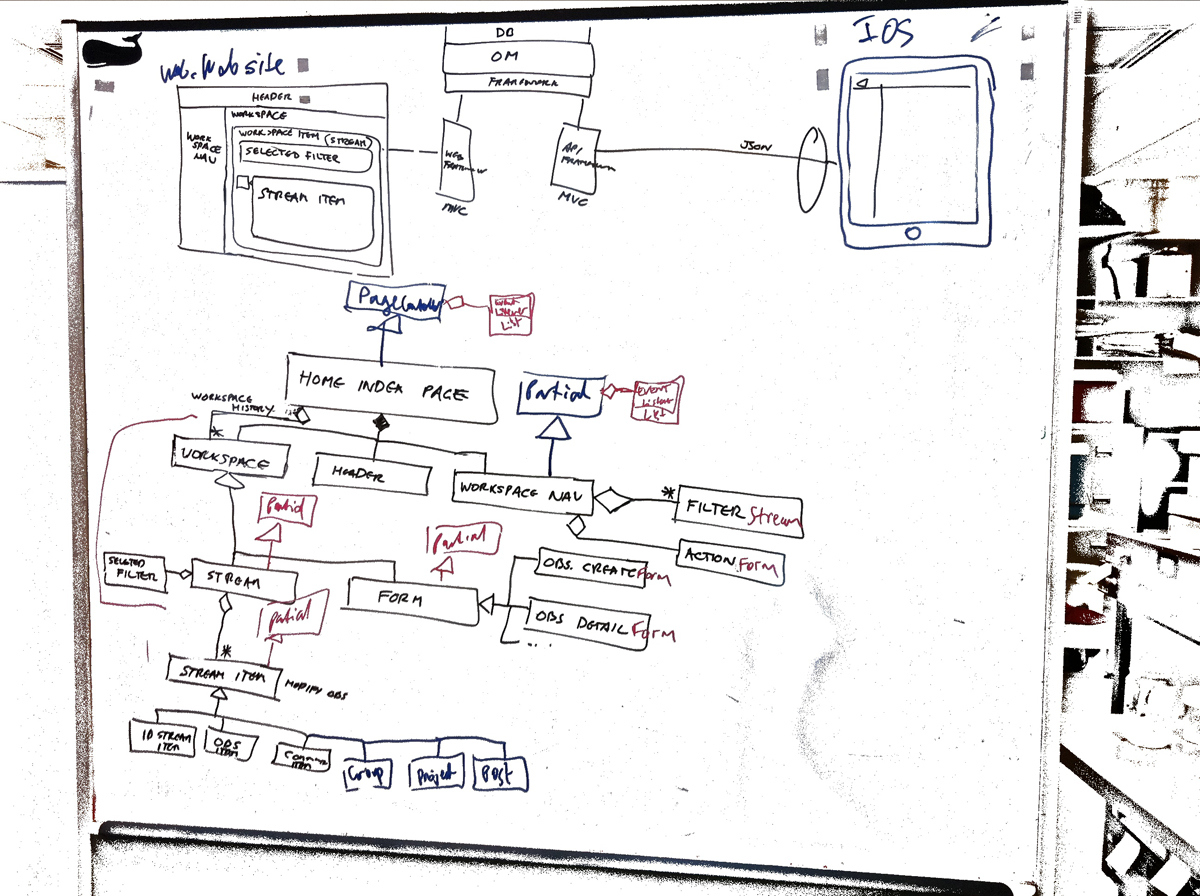 IOS
Web. Web site
DB
OM
FRAMEWORK
HEADER
WORKSPACE
WORK
SPACE
NAV
WORKSPACE ITEM (STREAM)
SELECTED FILTER
STREAM ITEM
WEB
MVC
API
FRAMEWORK
MVC
JSON
PageController
Event
Listener
List
HOME INDEX PAGE
Partial
EVENT
Listener
List
WORKSPACE
HISTORY
*
WORKSPACE
HEADER
WORKSPACE NAV
*
FILTER Stream
ACTION FORM
Partial
Partial
SELECTED
FILTER
STREAM
FORM
OBS. CREATE Form
OBS DETAIL Form
...
partial
*
STREAM ITEM
MODIFY OBS
ID STREAM
ITEM
OBS
ITEM
ITEM
Group
Project
Post